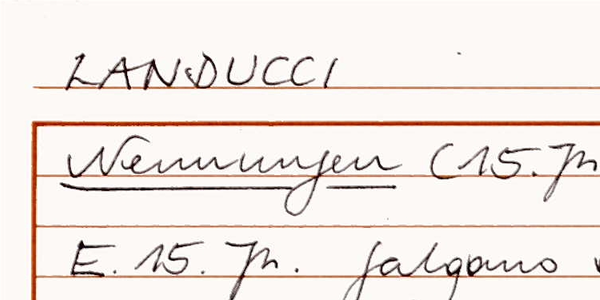 LANDUCCI
Nennungen (15. Jh
E. 15. Jh. Galgano